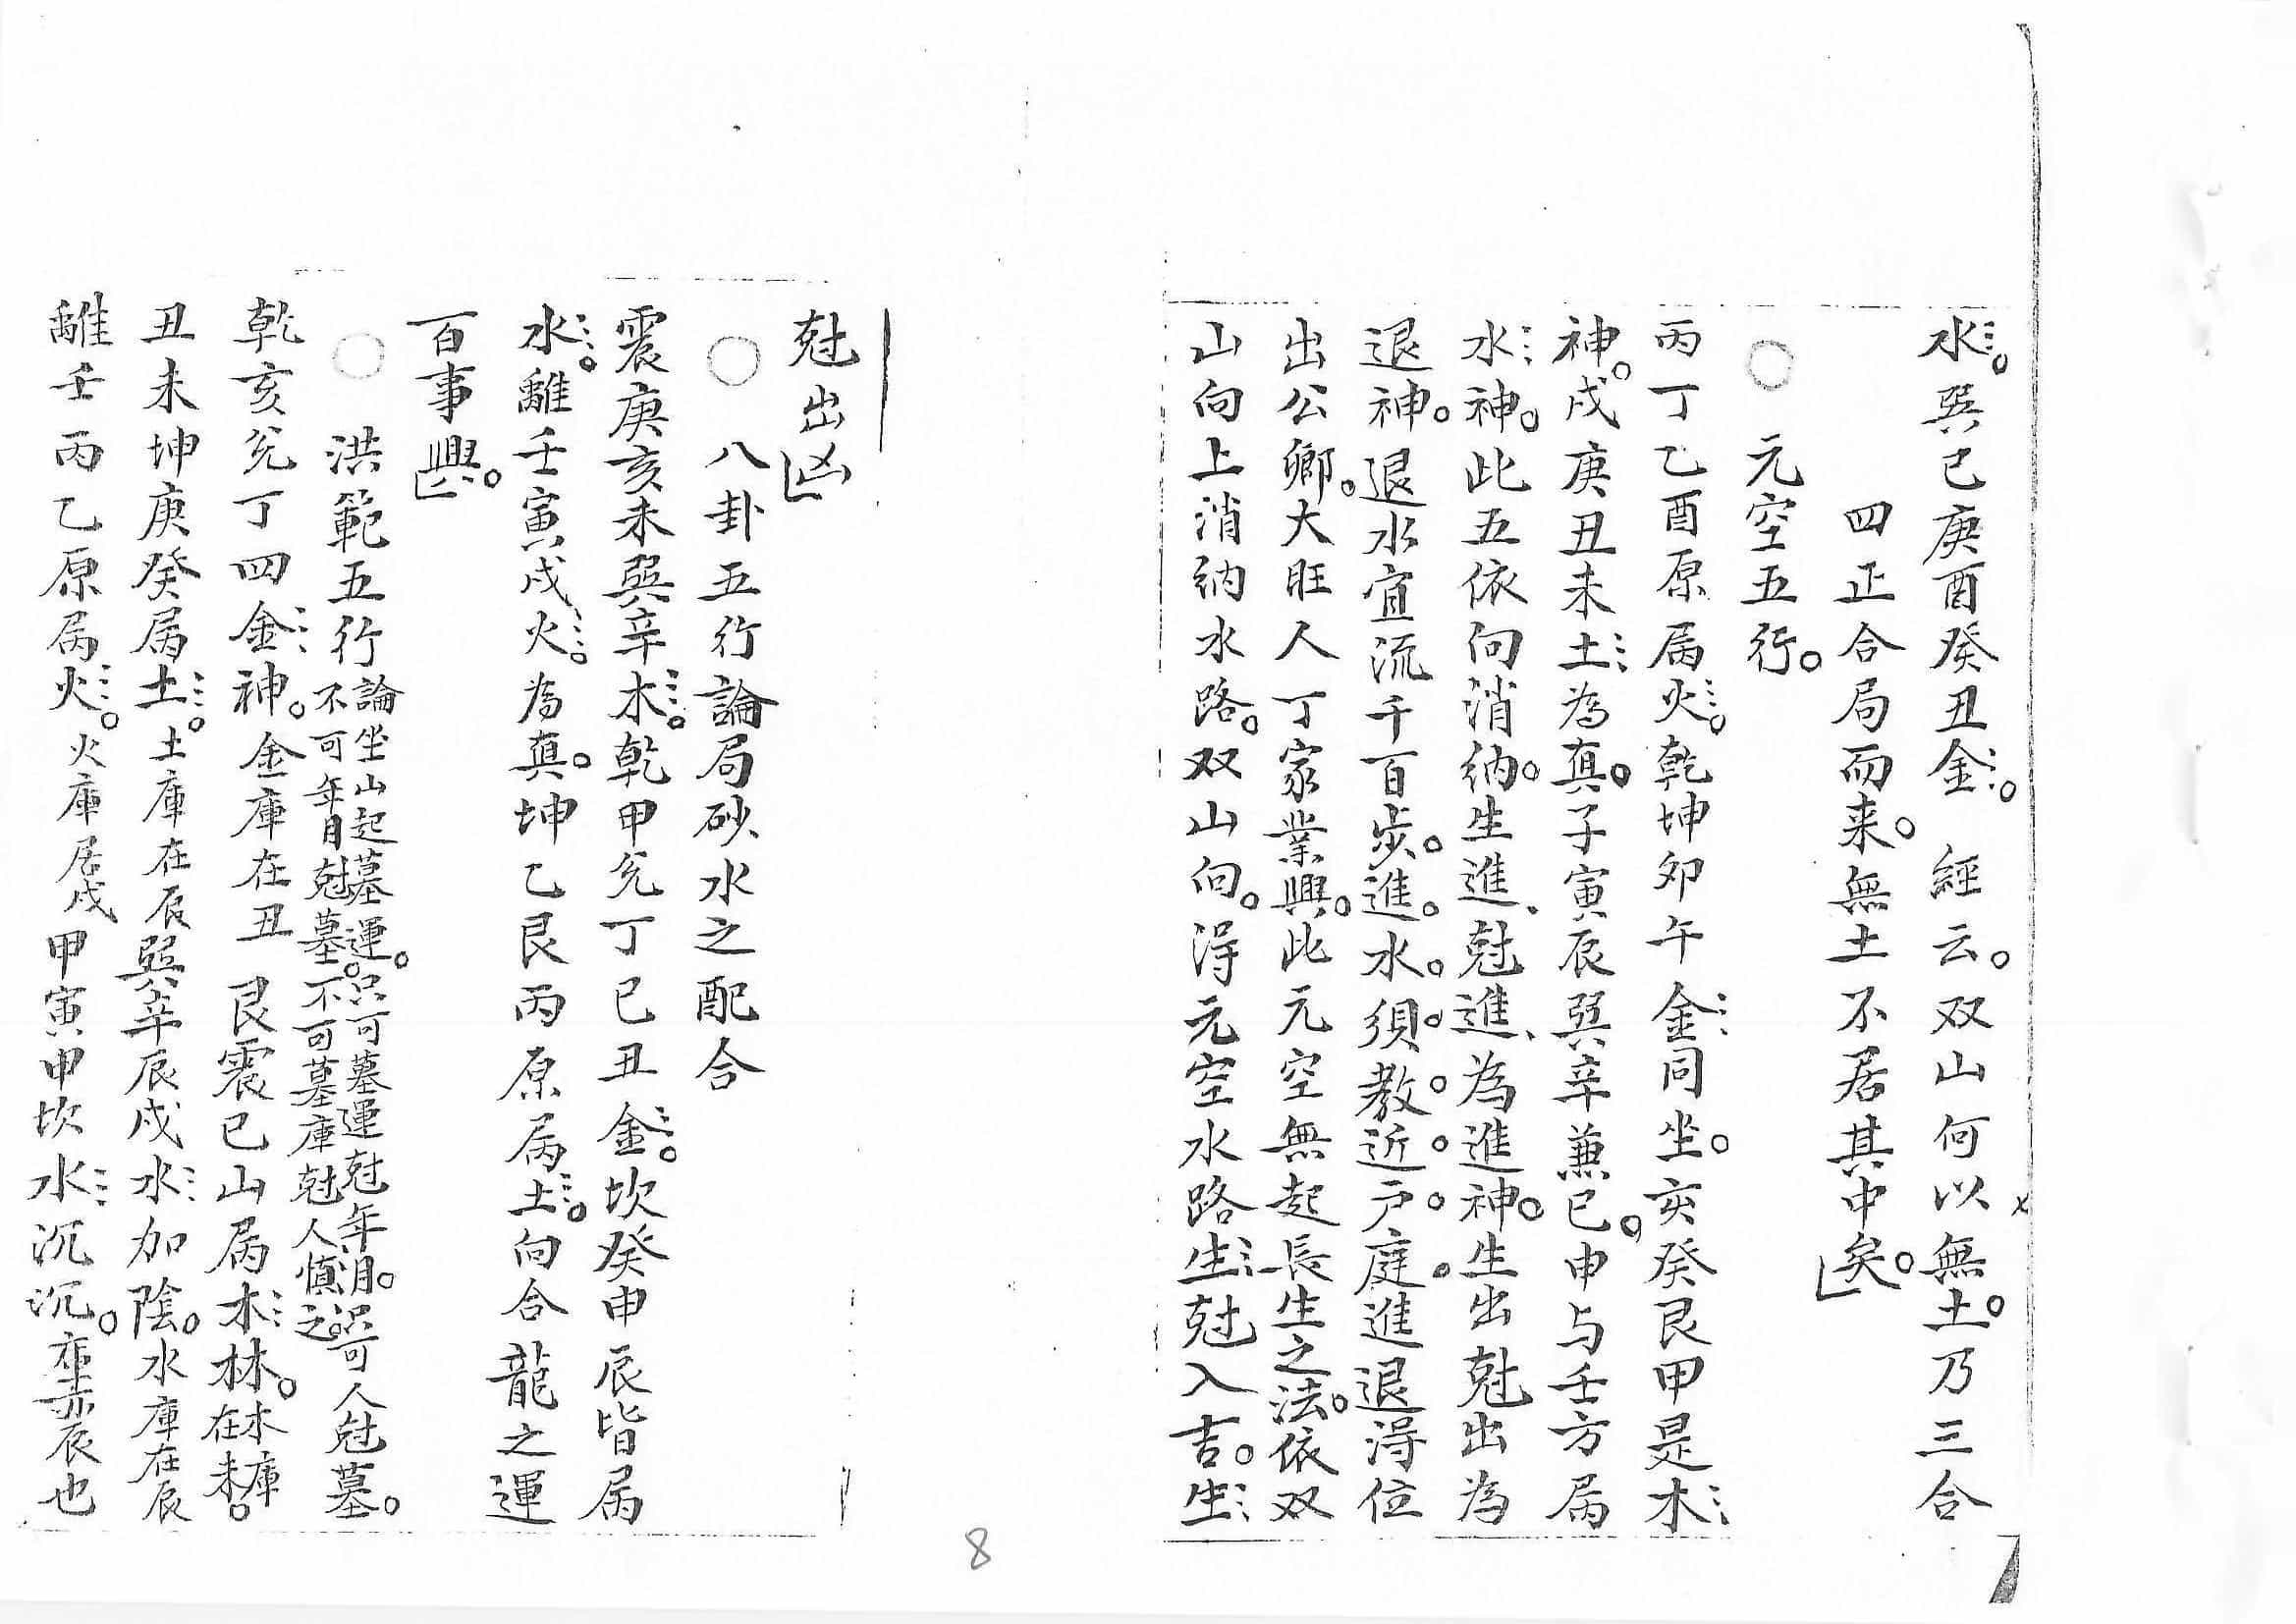 水。巽巳庚酉癸丑金。經云。双山何以無土。乃三合
四正合局而来。無土不居其中矣。
○元空五行。
丙丁乙酉原属火。乾坤卯午金同坐。亥癸艮甲是木
神。戌庚丑未土為真。子寅辰巽辛兼巳。申与壬方属
水神。此五依向消納。生進、尅進、為進神。生出尅出為
退神。退水宜流千百步。進。水。須。教。近。户。庭。進退淂位
出公卿。大旺人丁家業興。此元空無起長生之法。依双
山向上消納水路。双山向。淂元空水路生尅入吉。生
尅出凶
○八卦五行論局砂水之配合
震庚亥未巽辛木。乾甲兊丁巳丑金。坎癸申辰皆属
水。離壬寅戌火。為真。坤乙艮丙原属土。向合龍之運
百事興。
○洪範五行
論坐山起墓運。只可墓運尅年月。只可人尅墓。
不可年月尅墓。不可墓庫尅人慎之。
乾亥兊丁四金神。金庫在丑 艮震巳山属木林。木庫在未。
丑未坤庚癸属土。土庫在辰 巽辛辰戌水加陰。水庫在辰
離壬丙乙原属火。火庫居戌 甲寅申坎水沉沉。庫亦辰也
8